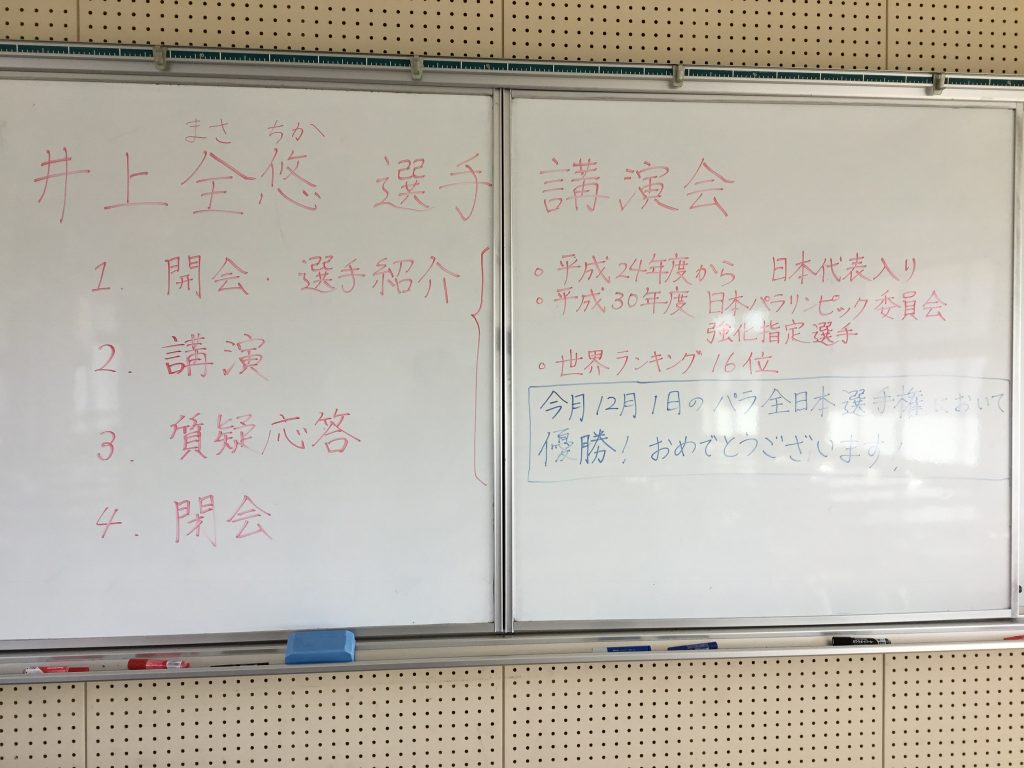 まさ ちか
井上 全悠 選手 講演会
1. 開会・選手紹介
2. 講演
3. 質疑応答
4. 閉会
。平成24年度から 日本代表入り
。平成30年度 日本パラリンピック委員会
強化指定選手
。世界ランキング16位
今月12月1日のパラ全日本選手権において
優勝！おめでとうございます！